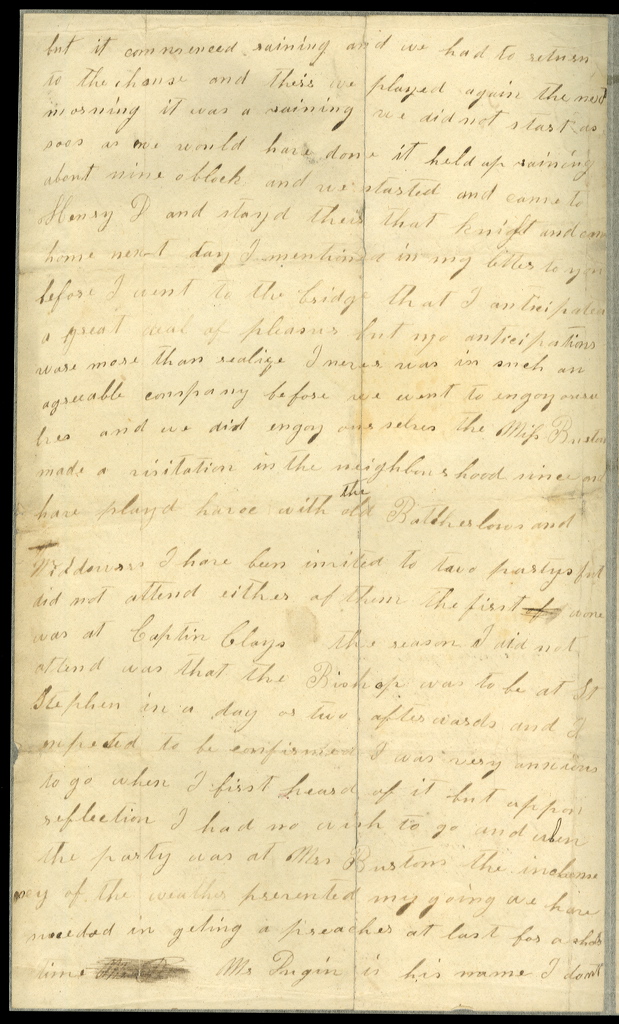 but it commenced raining and we had to return
to the house and theirs we played again the next
morning it was a raining we did not start as
soon as we would have done it held up raining
about nine oblock and we started and came to
Henry D and stayd their that knight and came
home next day I mentioned in my letter to you
before I went to the bridge that I anticipated
a great deal of pleasur but my anticipations
ware more than realize I never was in such an
agreeable company before we went to engoy ourse
lves and we did engoy ourselves the Miss Burton
made a visitation in the neighbourshood since and
have playd havoc with the old Batcherlours and
Widowers I have been invited to two partys but
did not attend either of them the first wone
was at Captin Clays the reason I did not
attend was that the Bishop was to be at St
Stephen in a day or two afterwards and I
expected to be confirmed I was very anxious
to go when I first heard of it but appon
reflection I had no wish to go and when
the party was at Mrs Burtons the incleme
ncy of the weather prevented my going we have
suceeded in geting a preacher at last for a short
time Mr Pugin is his name I dont